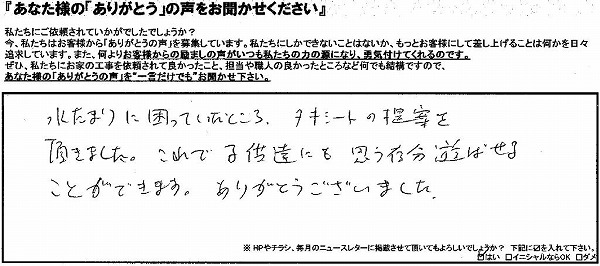 『あなた様の「ありがとう」の声をお聞かせください』
私たちにご依頼されていかがでしたでしょうか？
今、私たちはお客様から「ありがとうの声」を募集しています。私たちにしかできないことはないか、もっとお客様にして差し上げることは何かを日々
追求しています。また、何よりお客様からの励ましの声がいつも私たちの力の源になり、勇気付けてくれるのです。
ぜひ、私たちにお家の工事を依頼されて良かったこと、担当や職人の良かったところなど何でも結構ですので、
あなた様の「ありがとうの声」を“一言だけでも”お聞かせ下さい。
水たまりに困っていたところ、タキシートの提案を
頂きました。これで子供達にも思う存分遊ばせる
ことができます。ありがとうございました。
※ HPやチラシ、毎月のニュースレターに掲載させて頂いてもよろしいでしょうか？ 下記に☑を入れて下さい。
☑はい □イニシャルならOK □ダメ